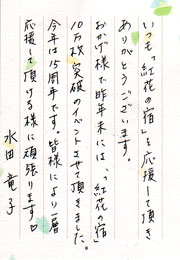 いつも「紅花の宿」を応援して頂き
ありがとうございます。
おかげ様で昨年末には、「紅花の宿」
10万枚突破のイベントさせて頂きました。
今年は15周年です。皆様により一層
応援して頂ける様に頑張ります♡
水田竜子